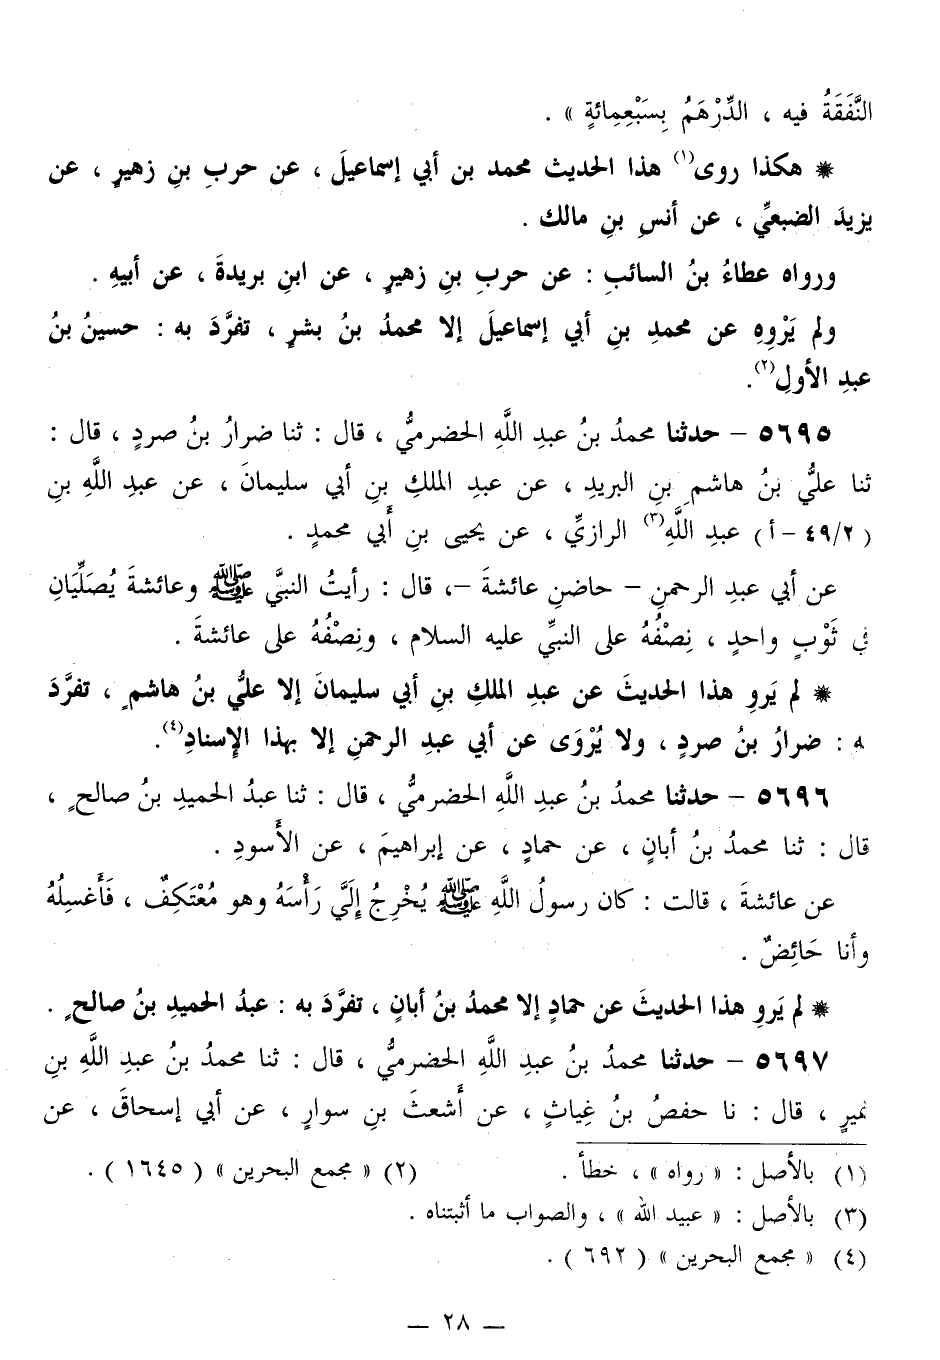 النَّفَقَةُ فيه ، الدِّرْهَمُ بِسَبْعِمِائةٍ » .
* هكذا روى(١) هذا الحديث محمد بن أبي إسماعيلَ ، عن حربِ بنِ زهيرٍ ، عن
يزيدَ الضبعيِّ ، عن أنسِ بنِ مالك .
ورواه عطاءُ بنُ السائبِ : عن حربِ بنِ زهيرٍ ، عن ابنِ بريدةَ ، عن أبيهِ .
ولم يَرْوِهِ عن محمدِ بنِ أبي إسماعيلَ إلا محمدُ بنُ بشرٍ ، تفرَّدَ به : حسينُ بنُ
عبدِ الأولِ(٢).
٥٦٩٥ – حدثنا محمدُ بنُ عبدِ اللَّهِ الحضرميُّ ، قال : ثنا ضرارُ بنُ صردٍ ، قال :
ثنا عليُّ بنُ هاشمِ بنِ البريدِ ، عن عبدِ الملكِ بنِ أبي سليمانَ ، عن عبدِ اللَّهِ بنِ
( ٤٩/٢ – أ ) عبدِ اللَّهِ(٣) الرازيِّ ، عن يحيى بنِ أَبي محمدٍ .
عن أبي عبدِ الرحمنِ – حاضنِ عائشةَ –، قال : رأيتُ النبيَّ ﷺ وعائشةَ يُصَلِّيَانِ
في ثَوْبٍ واحدٍ ، نِصْفُهُ على النبيِّ عليه السلام ، ونِصْفُهُ على عائشةَ .
* لم يَروِ هذا الحديثَ عن عبدِ الملكِ بنِ أبي سليمانَ إلا عليُّ بنُ هاشمٍ ، تفرَّدَ
ه : ضرارُ بنُ صردٍ ، ولا يُرْوَى عن أبي عبدِ الرحمنِ إلا بهذا الإسنادِ(٤).
٥٦٩٦ – حدثنا محمدُ بنُ عبدِ اللَّهِ الحضرميُّ ، قال : ثنا عبدُ الحميدِ بنُ صالحٍ ،
قال : ثنا محمدُ بنُ أبانٍ ، عن حمادٍ ، عن إبراهيمَ ، عن الأَسودِ .
عن عائشةَ ، قالت : كان رسولُ اللَّهِ ﷺ يُخْرِجُ إِلَيَّ رَأْسَهُ وهو مُعْتَكِفٌ ، فَأَغسِلُهُ
وأنا حَائِضٌ .
* لم يَروِ هذا الحديثَ عن حمادٍ إلا محمدُ بنُ أبانٍ ، تفرَّدَ به : عبدُ الحميدِ بنُ صالحٍ .
٥٦٩٧ – حدثنا محمدُ بنُ عبدِ اللَّهِ الحضرميُّ ، قال : ثنا محمدُ بنُ عبدِ اللَّهِ بنِ
نميرٍ ، قال : نا حفصُ بنُ غِياثٍ ، عن أَشعثَ بنِ سوارٍ ، عن أبي إسحاقَ ، عن
(١) بالأصل : « رواه » ، خطأ . (٢) « مجمع البحرين » ( ١٦٤٥ ) .
(٣) بالأصل : « عبيد الله » ، والصواب ما أثبتناه .
(٤) « مجمع البحرين » ( ٦٩٢ ) .
— ٢٨ —